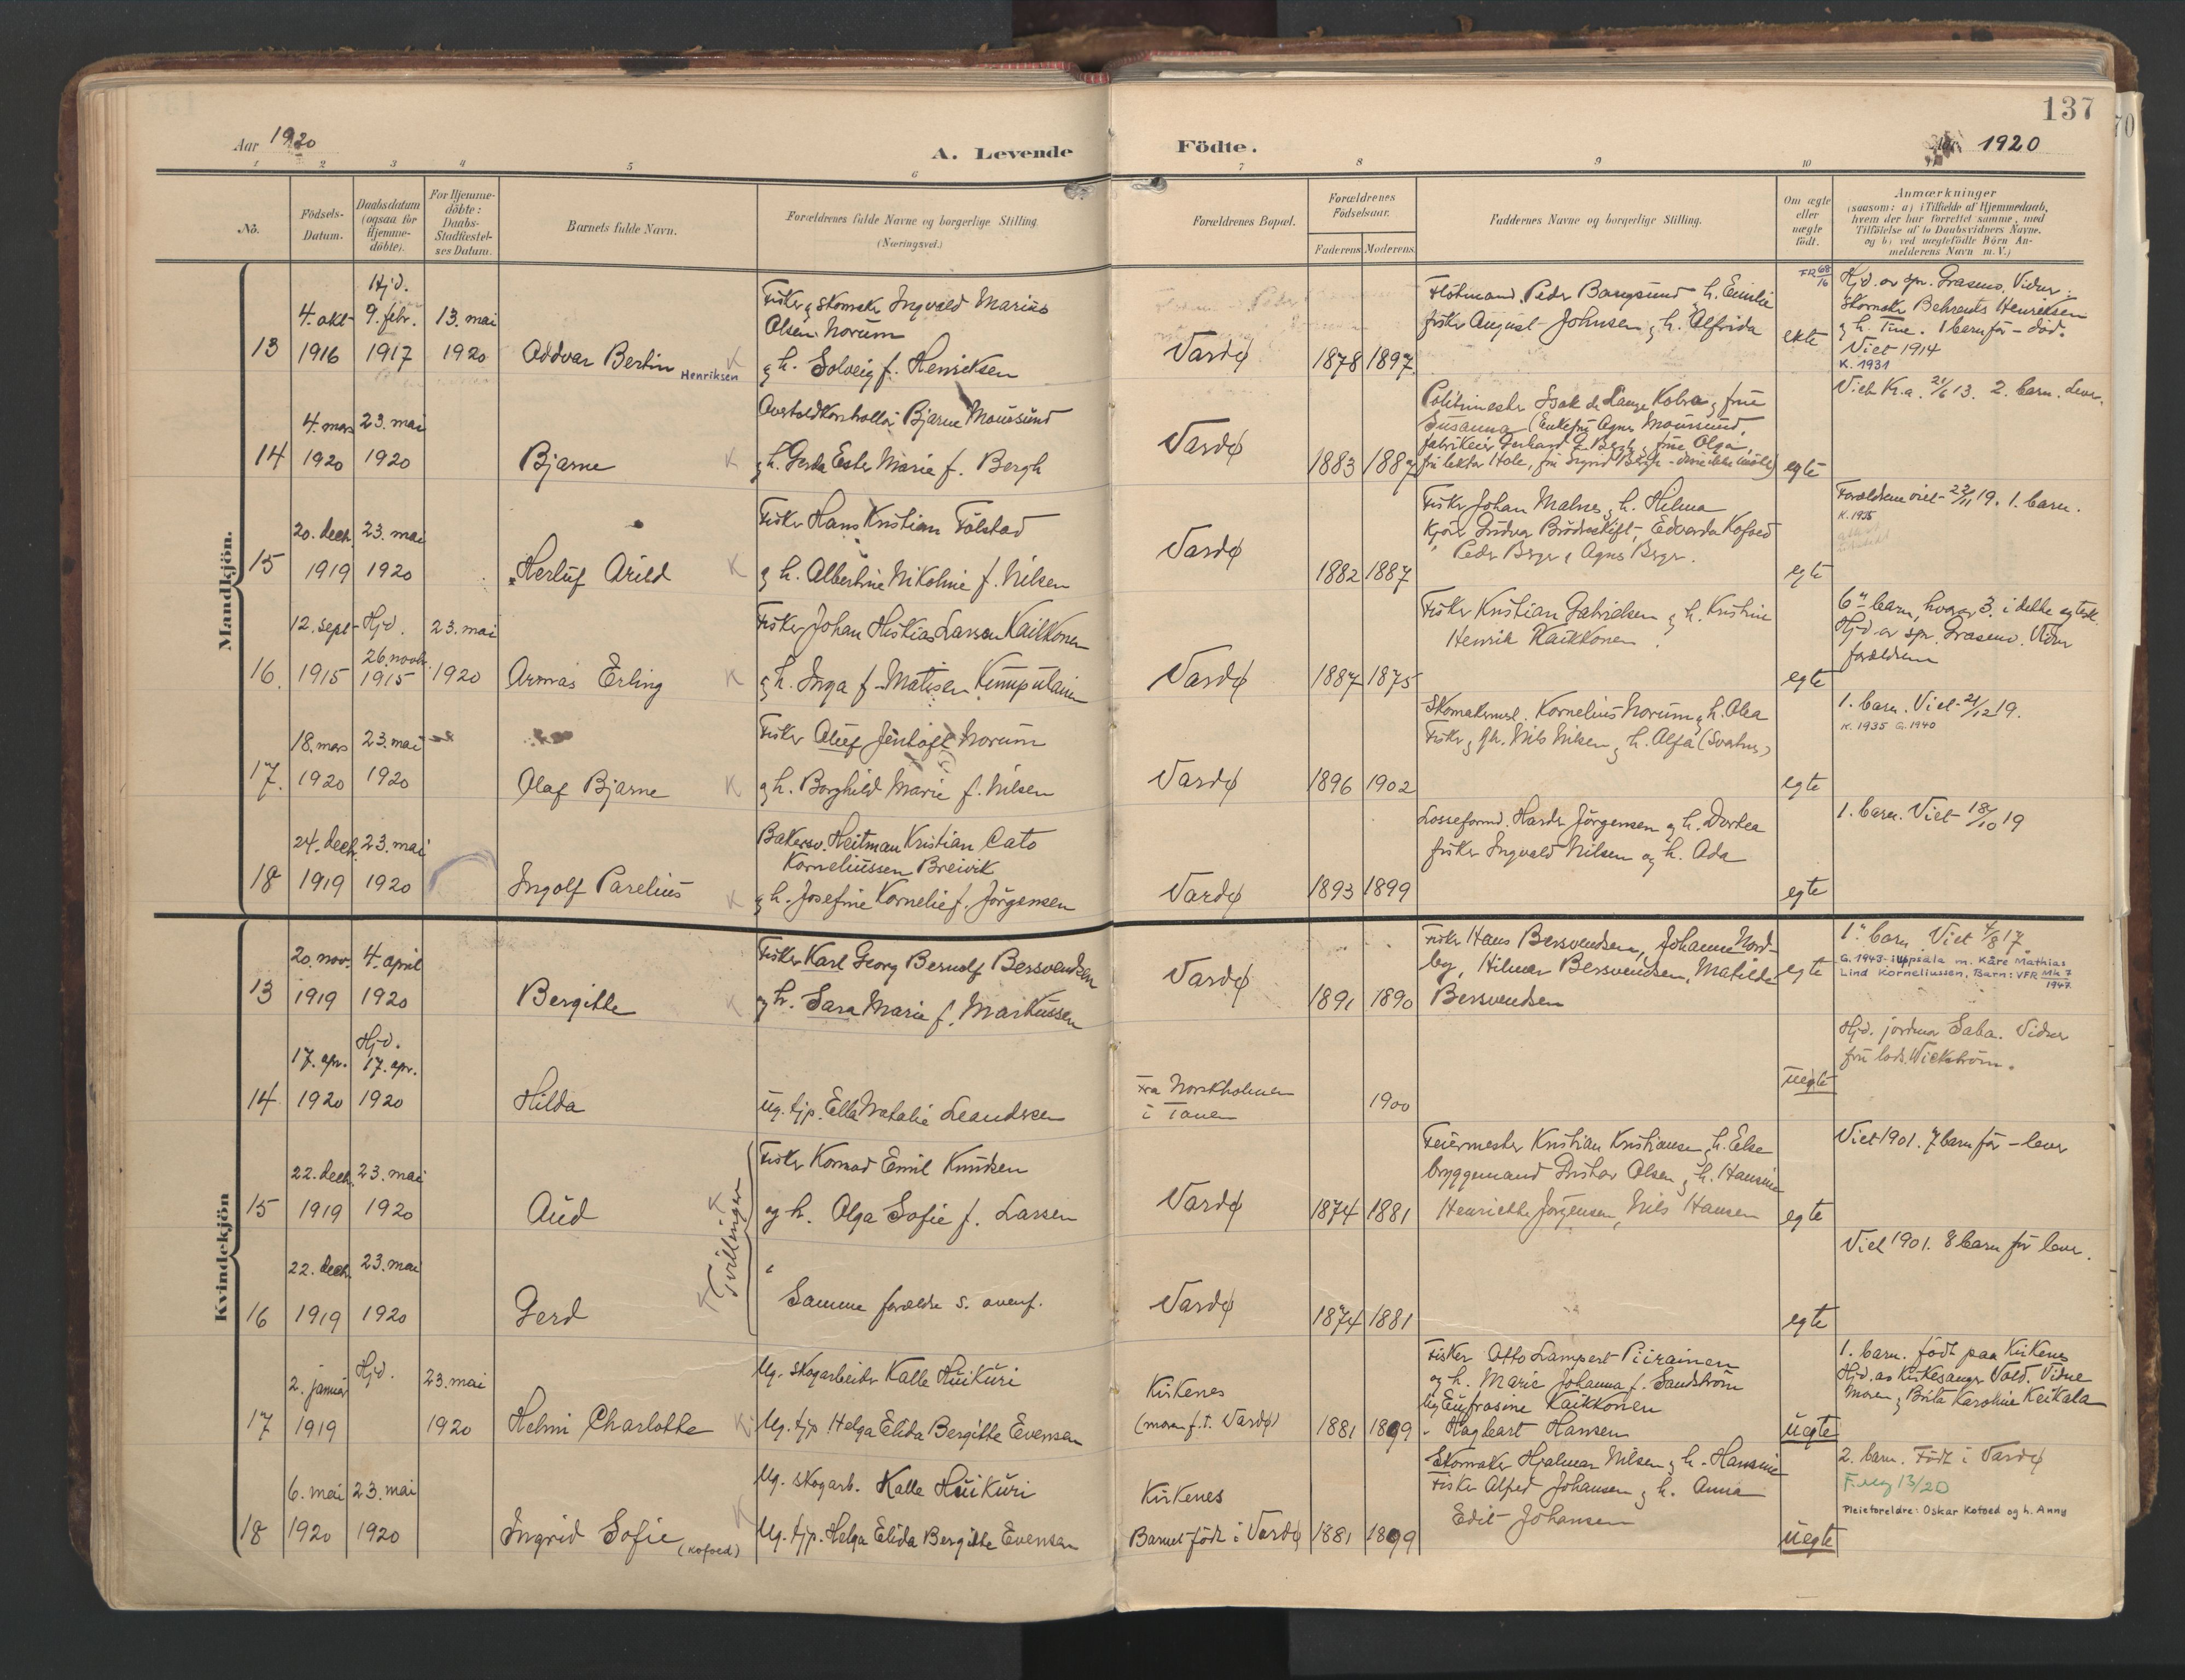 137
Aar 1920
A. Levende Födte.
Aar 1920
1 2 3 4 5 6 7 8 9 10 11
No.
Födsels-Datum.
Daabsdatum (ogsaa for Hjemme-döbte).
For Hjemme-döbte: Daabs-Stadfæstel-ses Datum.
Barnets fulde Navn.
Forældrenes fulde Navne og borgerlige Stilling.
(Næringsvei.)
Forældrenes Bopæl.
Forældrenes Födselsaar.
Faderens Moderens
Faddernes Navne og borgerlige Stilling.
Om ægte eller uægte födt.
Anmærkninger
(saasom: a) i Tilfælde af Hjemmedaab, hvem der har forrettet samme, med Tilföielse af to Daabsvidners Navne, og b) ved uægtefödte Börn An-melderens Navn m. V.)
Mandkjön.
Hjd.
4. okt 9. febr. 13. mai
13 1916 1917 1920 Oddvar Bertin Henriksen K
Fisker & skomaker Ingvald Marius
Olsen Norum
og h. Solveig f. Henriksen
Vardø 1878 1897
Flotmand Peder Bangsund & h. Emilie
fisker August Johnsen & h. Alfrida
ekte
FR 68/16
Hjd. av spr. Grasmo. Vidner:
Skomaker Behrents Henriksen
og h. Tine. 1 barn før - død.
Viet 1914
K. 1931
4. mars 23. mai
14 1920 1920 Bjarne K
Overtoldkontrollør Bjarne Moursund
og h. Gerda Ester Marie f. Bergh
Vardø 1883 1889
Politimester Isak de Lange Kobro & frue
Susanna (Enkefru Agnes Moursund,
fabrikeier Gerhard L. Bergh & frue Olga,
fru lektor Hole, fru Sigrid Bergh - disse ikke tilstede)
egte
Viet Kr.a. 21/6 13. 2. barn. Lever.
20. decb. 23. mai
15 1919 1920 Herluf Arild K
Fisker Hans Kristian Tolstad
og h. Albertine Nikoline f. Nilsen
Vardø 1882 1887
Fisker Johan Malnes & h. Hilma
Kjører Gudvar Brodreskift, Edvarda Kofoed
Peder Berger & Agnes Berger.
egte
Forældrene viet 22/11 19. 1. barn.
K. 1935
12. sept Hjd. 23. mai
26. novb.
16. 1915 1915 1920 Armas Erling K
Fisker Johan Hiskias Larsson Kaikkonen
og h. Inga f. Matisen Kumpulainen
Vardø 1887 1875
Fisker Kristian Gabrielsen & h. Kristine
Henrik Kaikkonen.
egte
6te barn, hvorav 3. i dette egtesk.
Hjd av spr. Grasmo. Vidner
forældrene
18. mars 23. mai
17. 1920 1920 Olaf Bjarne K
Fisker Aluf Jentoft Norum
og h. Borghild Marie f. Nilsen
Vardø 1896 1902
Skomakermest. Kornelius Norum & h. Olea
Fisker & gb. Nils Nilsen & h. Alfa (Svartnes)
egte
1. barn. Viet 21/12 19.
K. 1935 G. 1940
24. decb. 23. mai
18 1919 1920 Ingolf Parelius K
Bakersv. Heitman Kristian Cato
Korneliussen Breivik
og h. Josefine Kornelie f. Jörgensen
Vardø 1893 1899
Losseformd. Harder Jörgensen og h. Dortea
fisker Ingvald Nilsen og h. Ada
egte
1. barn. Viet 18/10 19
Kvindekjön
20. nov. 4. april
13 1919 1920 Bergitte K
Fisker Karl Georg Bernolf Bersvendsen
og h. Sara Marie f. Markussen
Vardø 1891 1890
Fisker Hans Bersvendsen, Johanne Nord-
by, Hilmar Bersvendsen, Matilde
Bersvendsen
egte
1te barn Viet 4/8 17.
G. 1943 i Uppsala m. Kåre Mathias
Lind Korneliussen. Barn: VFR Mk 7/1947
Hjd.
17. apr. 17. apr.
14 1920 1920 Hilda
Ug. tjp. Ella Natalie Leandersen
Fra Norskholmen
i Tanen 1900
uegte
Hjd. jordmor Saba. Vidner
fru lods. Wickström.
22. decb. 23. mai
15 1919 1920 Aud
Tvillinger
Fisker Konrad Emil Knudsen
og h. Olga Sofie f. Larsen
Vardø 1874 1881
Feiermester Kristian Kristiansen & h. Else
bryggemand Gustav Olsen & h. Hansine
Henriette Jörgensen, Nils Hansen
egte
Viet 1901. 7 barn før - lever
22. decb. 23. mai
16 1919 1920 Gerd
Samme forældre s. ovenf.
Vardø 1874 1881
egte
Viet 1901. 8 barn før lever.
2. januar Hjd. 23. mai
17 1919 1920 Helmi Charlotte K
Ug. skogarbeider Kalle Huikuri
Ug. tjp. Helga Elida Bergitte Evensen
Kirkenes
(moren f.t. Vardø) 1881 1899
Fisker Otto Lampert Piirainen
og h. Marie Johanna f. Sandström
Ug Eufrosine Kaikkonen
" Hagbart Hansen
uegte
1. barn. født paa Kirkenes
Hjd. av Kirkesanger Vold. Vidne
Moren & Brita Karoline Keikala
6. mai 23. mai
18 1920 1920 Ingrid Sofie (Kofoed) K
Ug. skogarb. Kalle Huikuri
Ug. tjp. Helga Elida Bergitte Evensen
Kirkenes
Barnet født i Vardø 1881 1899
Skomaker Hjalmar Nilsen & h. Hansine
Fisker Alfred Johansen & h. Anna
Edit Johansen
uegte
2. barn. Født i Vardø
F. mg 13/20
Pleieforeldre: Oskar Kofoed og h. Anny